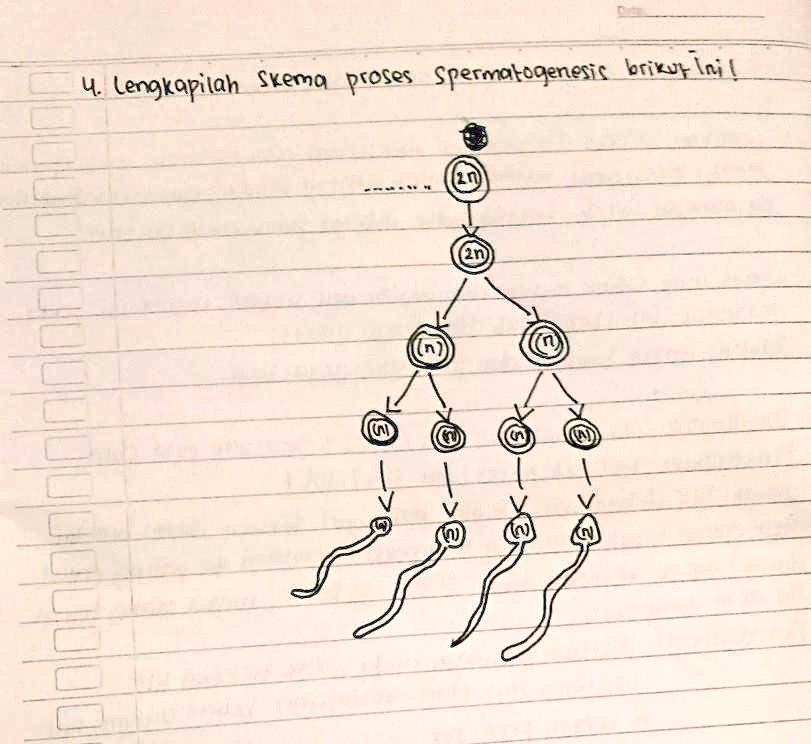 Date:
4. Lengkapilah skema proses spermatogenesis brikut ini!
........ 2n
2n
(n) (n)
(n) (n) (n) (n)
(n) (n) (n) (n)